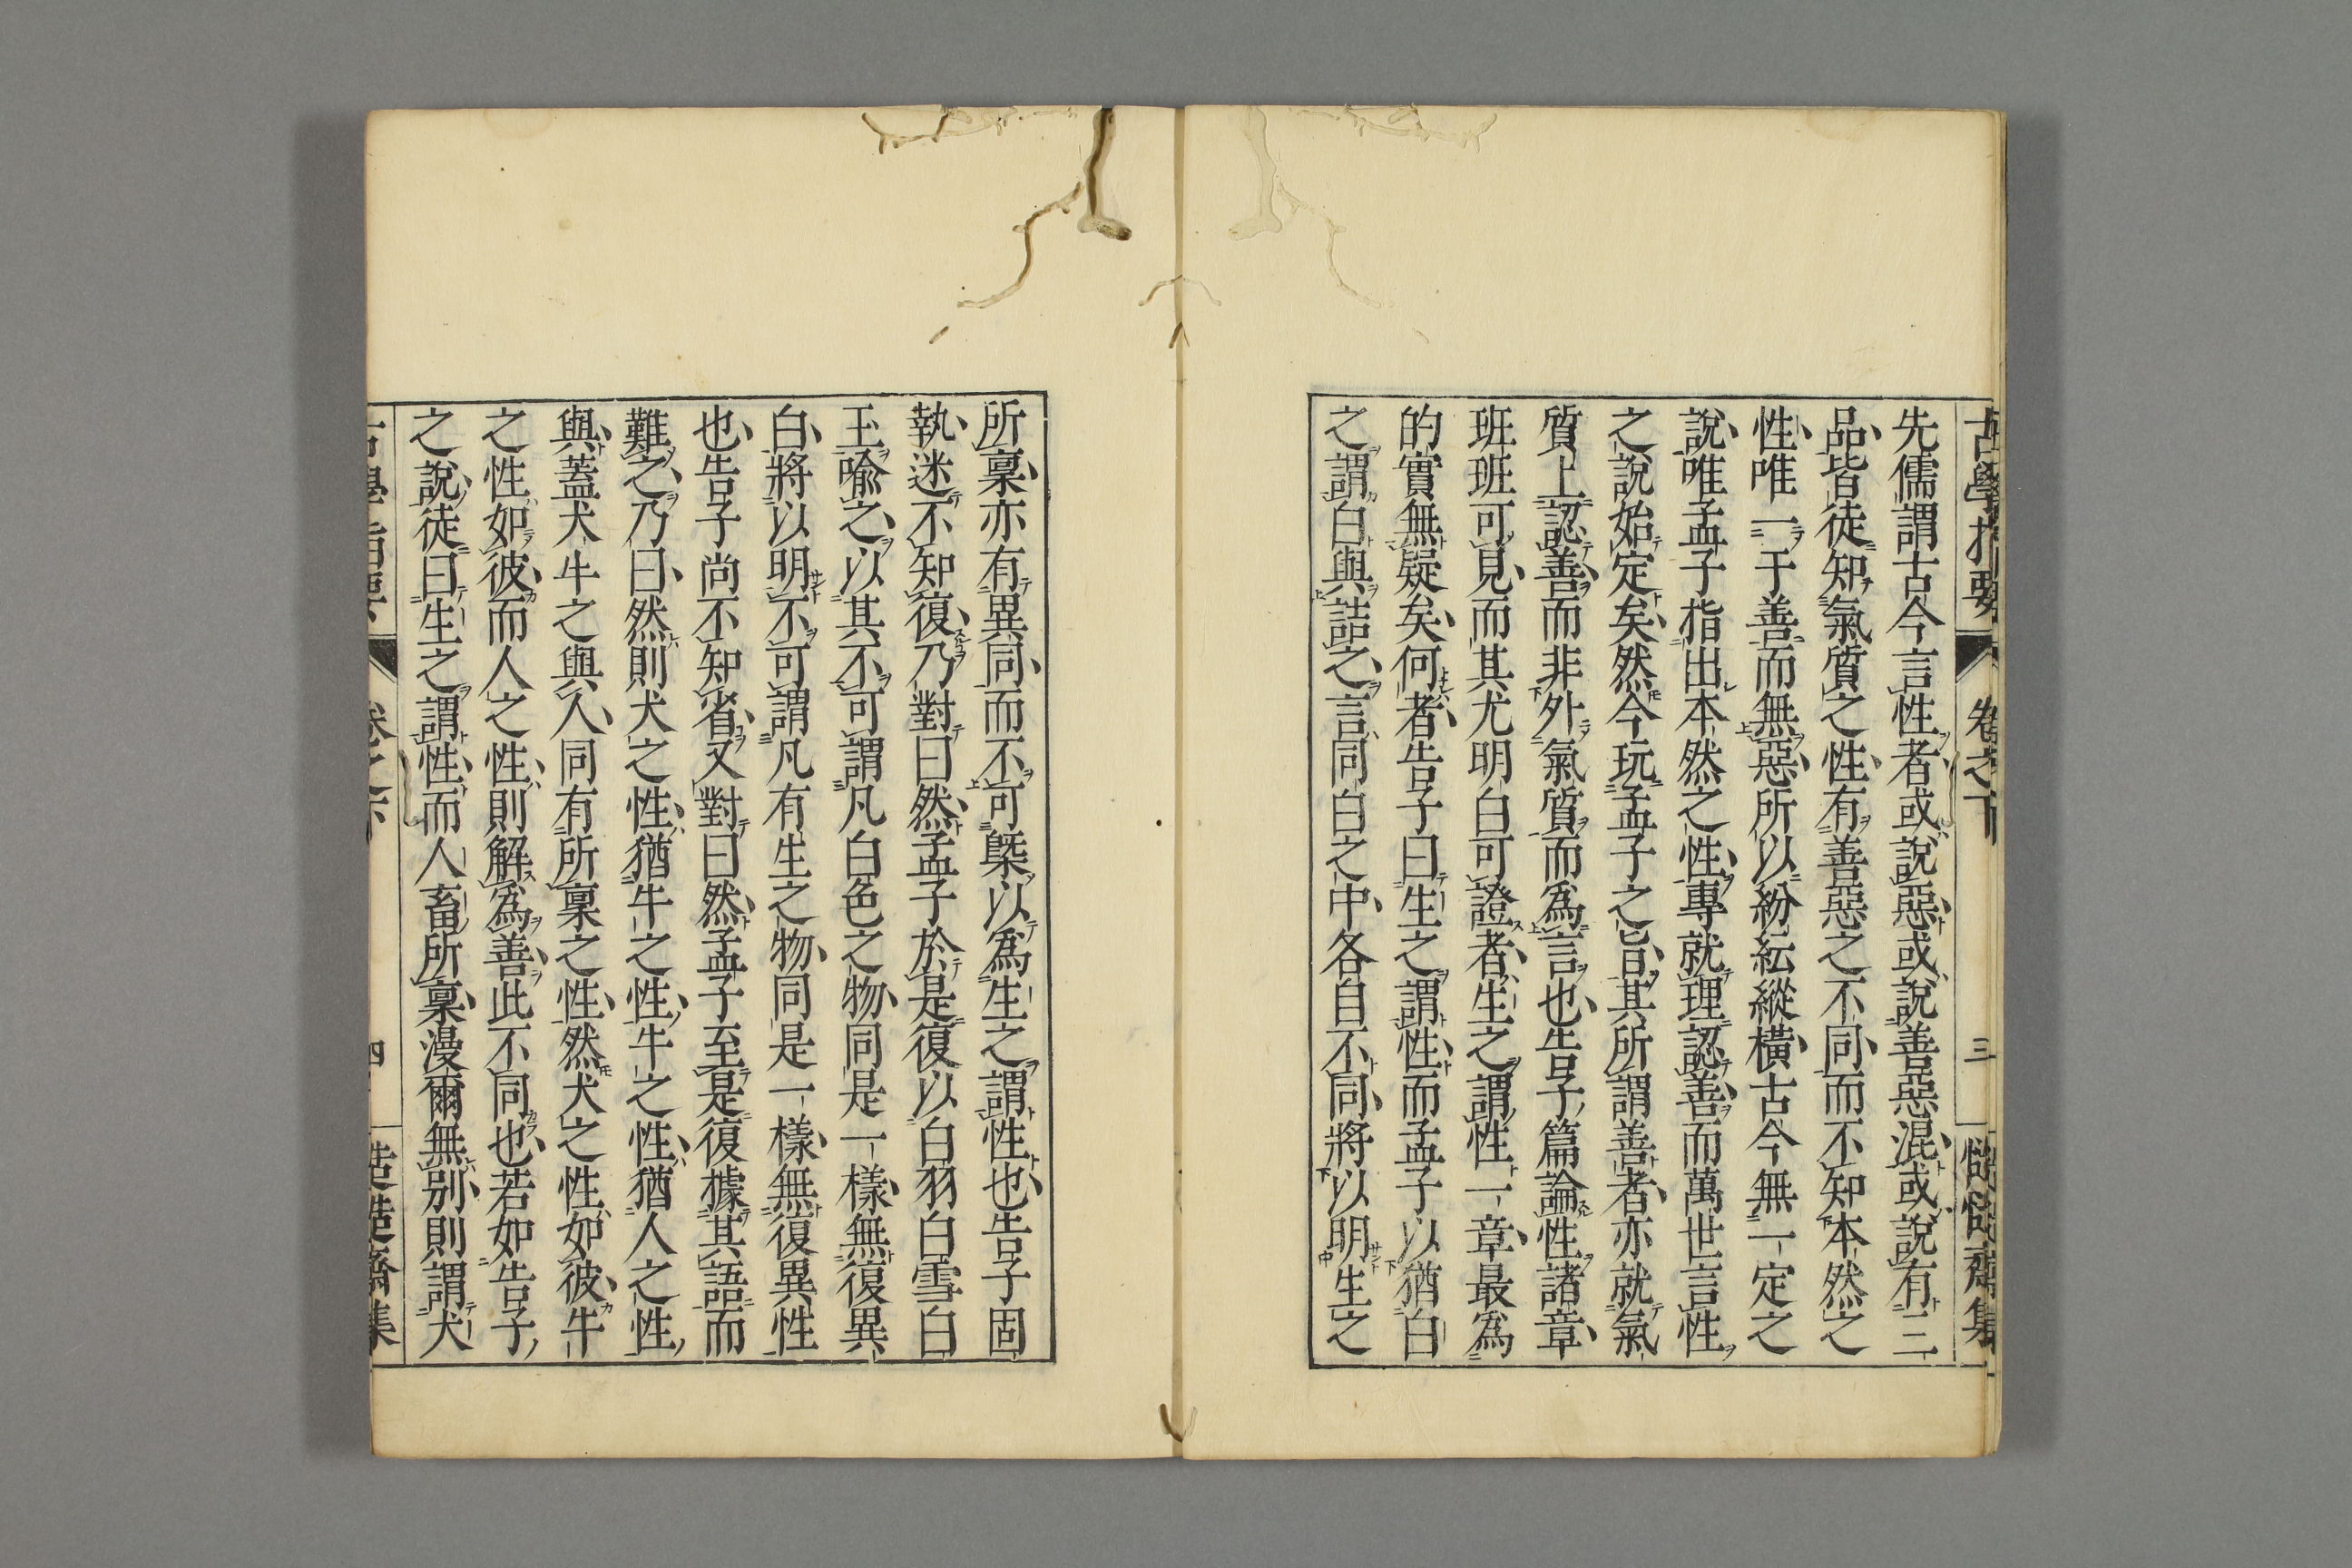 古學指要 卷之下 三 慥慥齋集
先儒謂古今言性者或說惡或說善惡混或說有三
品皆徒知氣質之性有善惡之不同而不知本然之
性唯一于善而無惡所以紛紜縱橫古今無一定之
說唯孟子指出本然之性專就理認善而萬世言性
之說始定矣然今玩孟子之旨其所謂善者亦就氣
質上認善而非外氣質而爲言也告子篇論性諸章
班班可見而其尤明白可證者生之謂性一章最爲
的實無疑矣何者告子曰生之謂性而孟子以猶白
之謂白與詰之言同白之中各自不同將以明生之
所稟亦有異同而不可槩以爲生之謂性也告子固
執迷不知復乃對曰然孟子於是復以白羽白雪白
玉喩之以其不可謂凡白色之物同是一樣無復異
白將以明不可謂凡有生之物同是一樣無復異性
也告子尚不知省又對曰然孟子至是復據其語而
難之乃曰然則犬之性猶牛之性牛之性猶人之性
與蓋犬牛之與人同有所稟之性然犬之性如彼牛
之性如彼而人之性則解爲善此不同也若如告子
之說徒曰生之謂性而人畜所稟漫爾無别則謂犬
古學指要 卷之下 四 慥慥齋集